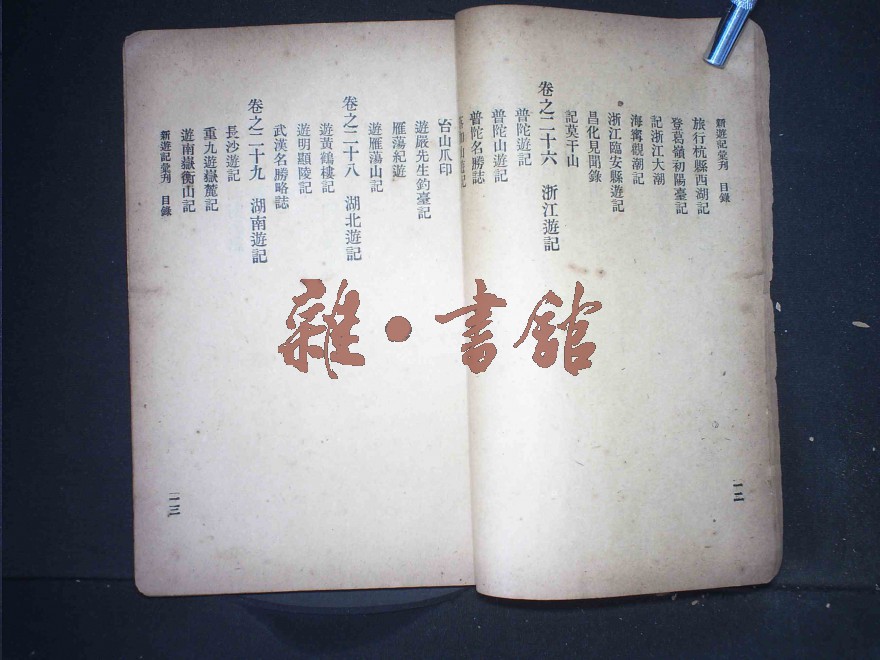 新遊記彙刋 目錄
旅行杭縣西湖記
登葛嶺初陽臺記
記浙江大潮
海寗觀潮記
浙江臨安縣遊記
昌化見聞錄
記莫干山
卷之二十六 浙江遊記
普陀遊記
普陀山遊記
普陀名勝誌
山遊記
一二
台山爪印
遊嚴先生釣臺記
雁蕩紀遊
遊雁蕩山記
卷之二十八 湖北遊記
遊黃鶴樓記
遊明顯陵記
武漢名勝略誌
卷之二十九 湖南遊記
長沙遊記
重九遊嶽麓記
遊南嶽衡山記
新遊記彙刋 目錄
一三
雜·書館